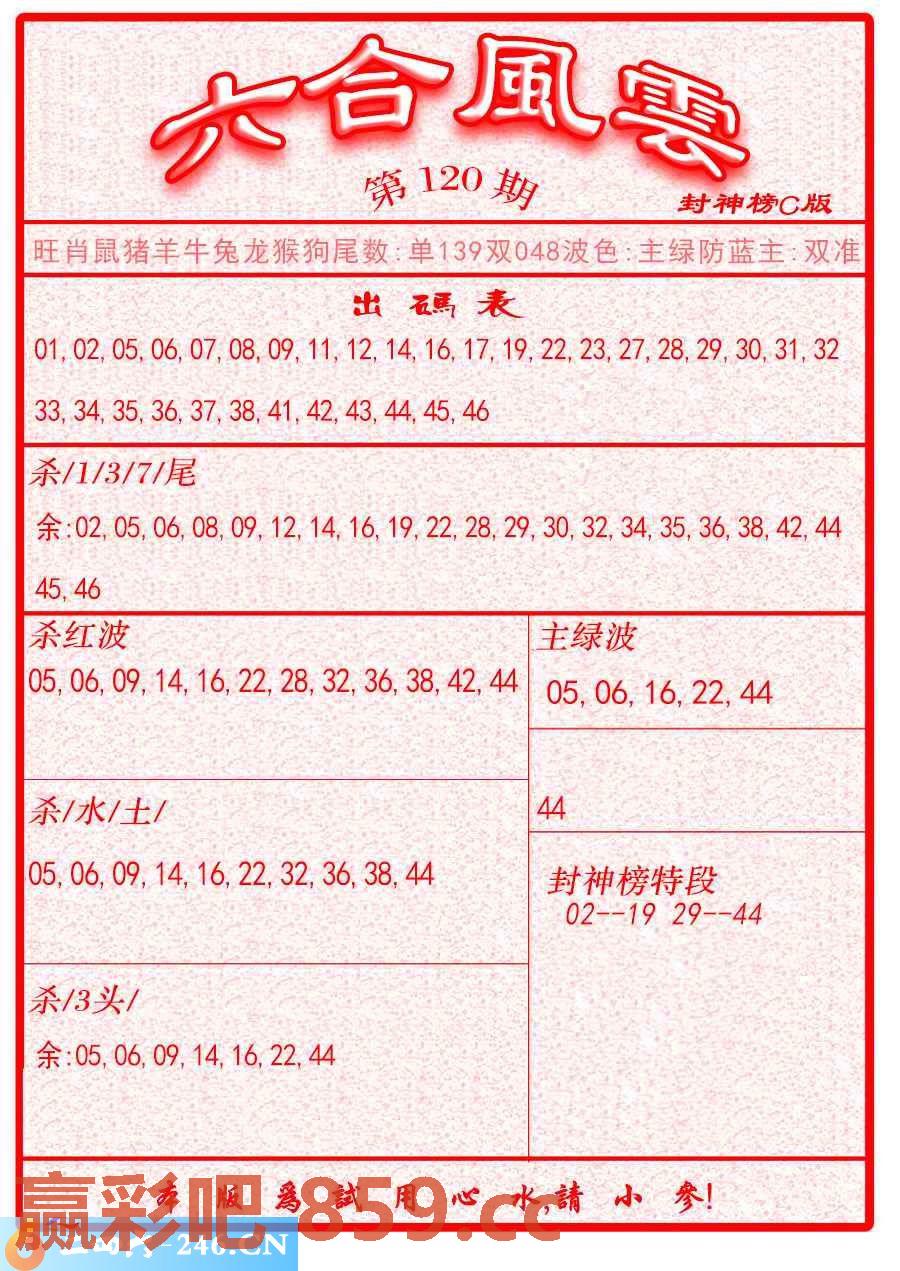 六合風雲
第120期
封神榜C版
旺肖鼠猪羊牛兔龙猴狗尾数:单139双048波色:主绿防蓝主:双准
出碼表
01,02,05,06,07,08,09,11,12,14,16,17,19,22,23,27,28,29,30,31,32
33,34,35,36,37,38,41,42,43,44,45,46
杀/1/3/7/尾
余:02,05,06,08,09,12,14,16,19,22,28,29,30,32,34,35,36,38,42,44
45,46
杀红波
05,06,09,14,16,22,28,32,36,38,42,44
主绿波
05,06,16,22,44
44
杀/水/土/
05,06,09,14,16,22,32,36,38,44
封神榜特段
02--19 29--44
杀/3头/
余:05,06,09,14,16,22,44
本版爲試用心水,請小參!
赢彩吧859.cc
-246.CN